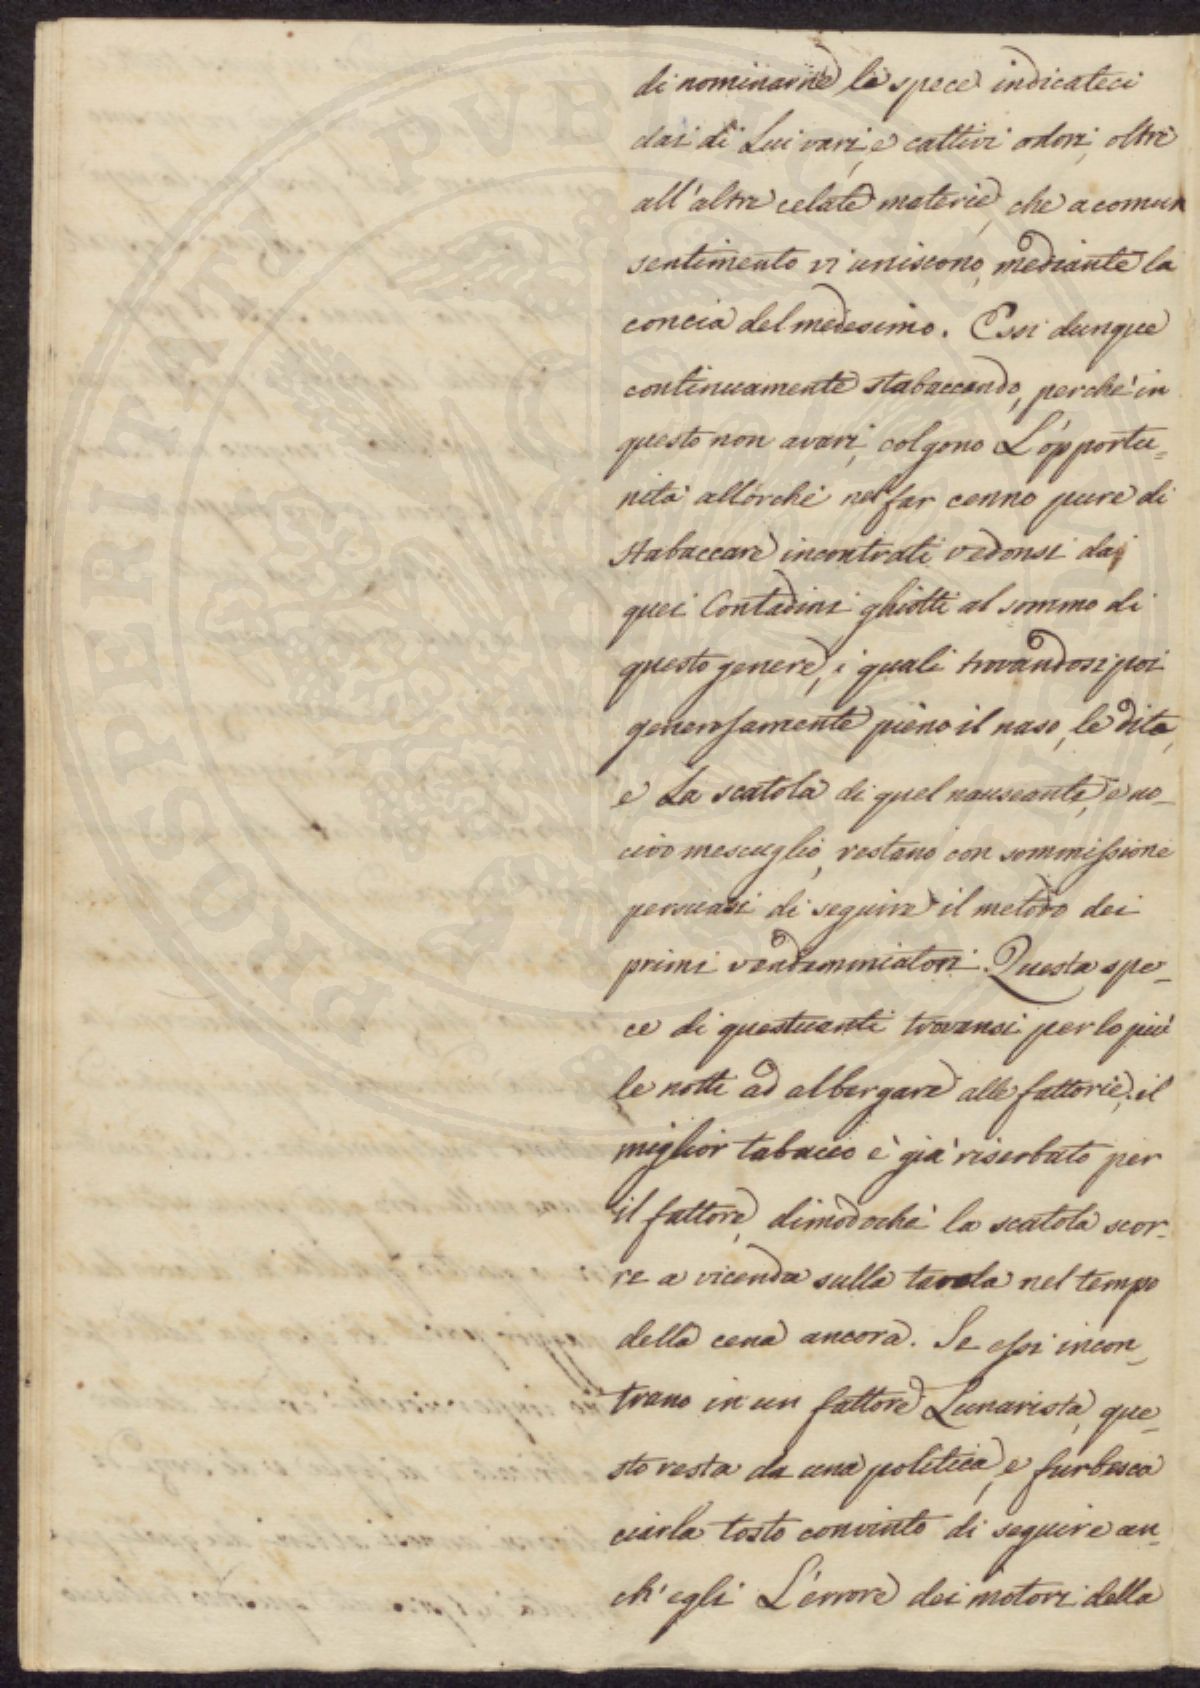 di nominarne le spece indicateci
dai di Lui varj, e cattivi odori, oltre
all'altre celate materie, che a comun
sentimento vi uniscono, mediante la
concia del medesimo. Essi dunque
continuamente stabaccando, perchè in
questo non avari, colgono L'opportu=
nità allorchè nel far cenno pure di
stabaccare incontrati vedonsi da
quei Contadini ghiotti al sommo di
questo genere, i quali trovandosi poi
generosamente pieno il naso, le dita,
e La scatola di quel nauseante, e no=
civo mescuglio, restano con sommissione
persuasi di seguire il metodo dei
primi vendemmiatori. Questa spe=
ce di questuanti trovansi per lo più
le notti ad albergare alle fattorie; il
miglior tabacco è già riserbato per
il fattore, dimodochè la scatola scor=
re a vicenda sulla tavola nel tempo
della cena ancora. Se essi incon=
trano in un fattore Lunarista, que=
sto resta da una politica, e furbesca
ciarla tosto convinto di seguire an=
ch'egli L'errore dei motori della
PROSPERITATI PUBLICAE